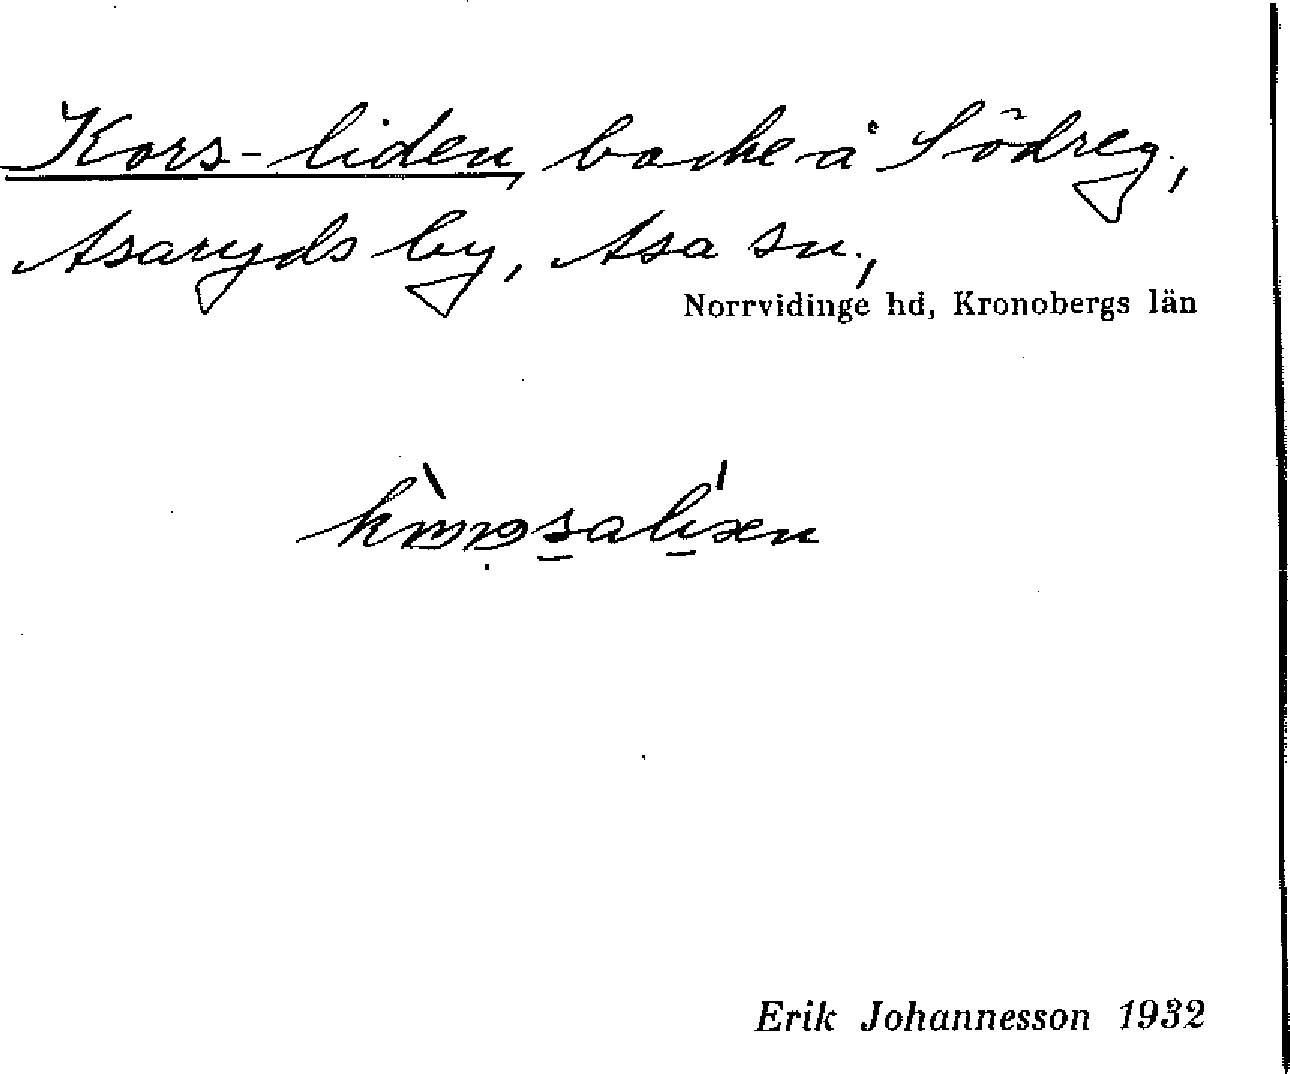 Kors-liden, backe å Södreg.,
Asaryds by, Asa sn.,
Norrvidinge hd, Kronobergs län
Erik Johannesson 1932